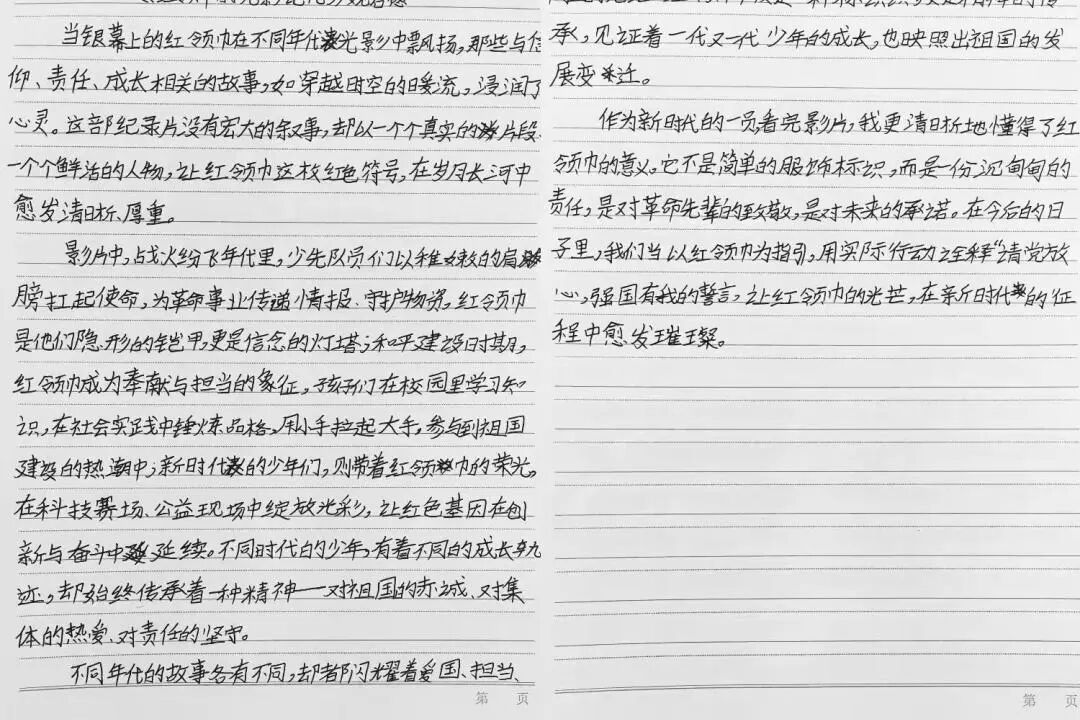 当银幕上的红领巾在不同年代光影中飘扬,那些与信
仰、责任、成长相关的故事,如穿越时空的暖流,浸润了
心灵。这部纪录片没有宏大的叙事,却以一个个真实的片段、
一个个鲜活的人物,让红领巾这枚红色符号,在岁月长河中
愈发清晰、厚重。
影片中,战火纷飞年代里,少先队员们以稚嫩的肩
膀扛起使命,为革命事业传递情报、守护物资,红领巾
是他们隐形的铠甲,更是信念的灯塔;和平建设时期,
红领巾成为奉献与担当的象征,孩子们在校园里学习知
识,在社会实践中锤炼品格,用小手拉起大手,参与到祖国
建设的热潮中;新时代的少年们,则带着红领巾的荣光,
在科技赛场、公益现场中绽放光彩,让红色基因在创
新与奋斗中延续。不同时代的少年,有着不同的成长轨
迹,却始终传承着一种精神——对祖国的赤诚、对集
体的热爱、对责任的坚守。
不同年代的故事各有不同,却都闪耀着爱国、担当、
承,见证着一代又一代少年的成长,也映照出祖国的发
展变迁。
作为新时代的一员看完影片,我更清晰地懂得了红
领巾的意义。它不是简单的服饰标识,而是一份沉甸甸的
责任,是对革命先辈的致敬,是对未来的承诺。在今后的日
子里,我们当以红领巾为指引,用实际行动诠释“请党放
心,强国有我的誓言,让红领巾的光芒,在新时代的征
程中愈发璀璨。
第 页
第 页